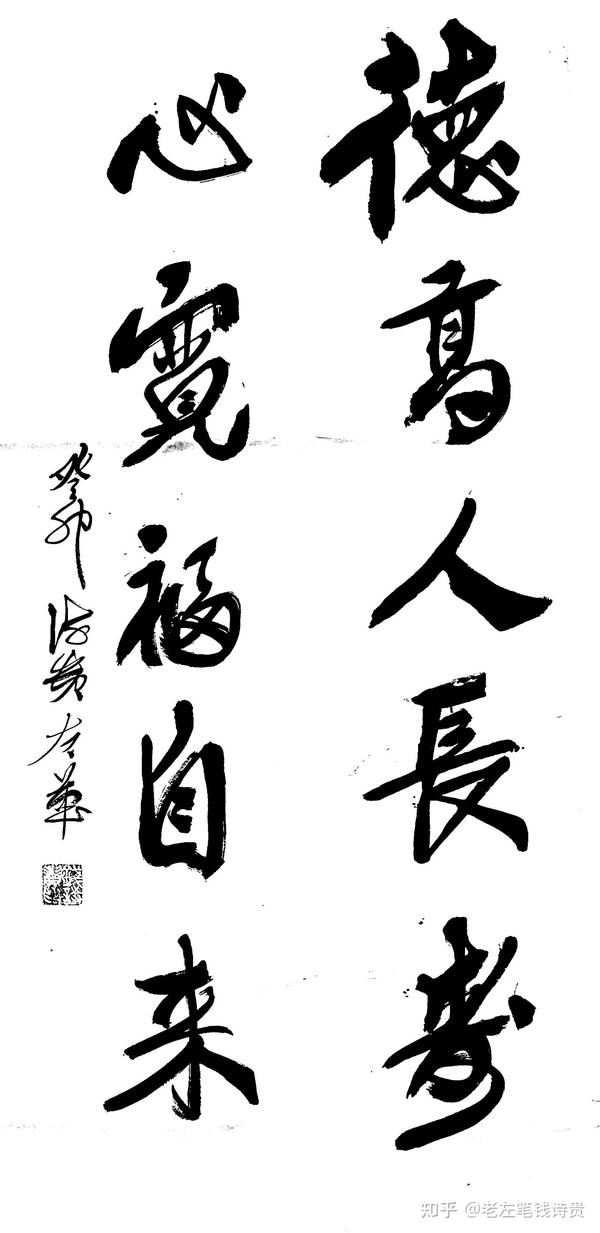 德高人長壽
心寬福自来
癸卯 诗贵左笔
知乎 @老左笔钱诗贵